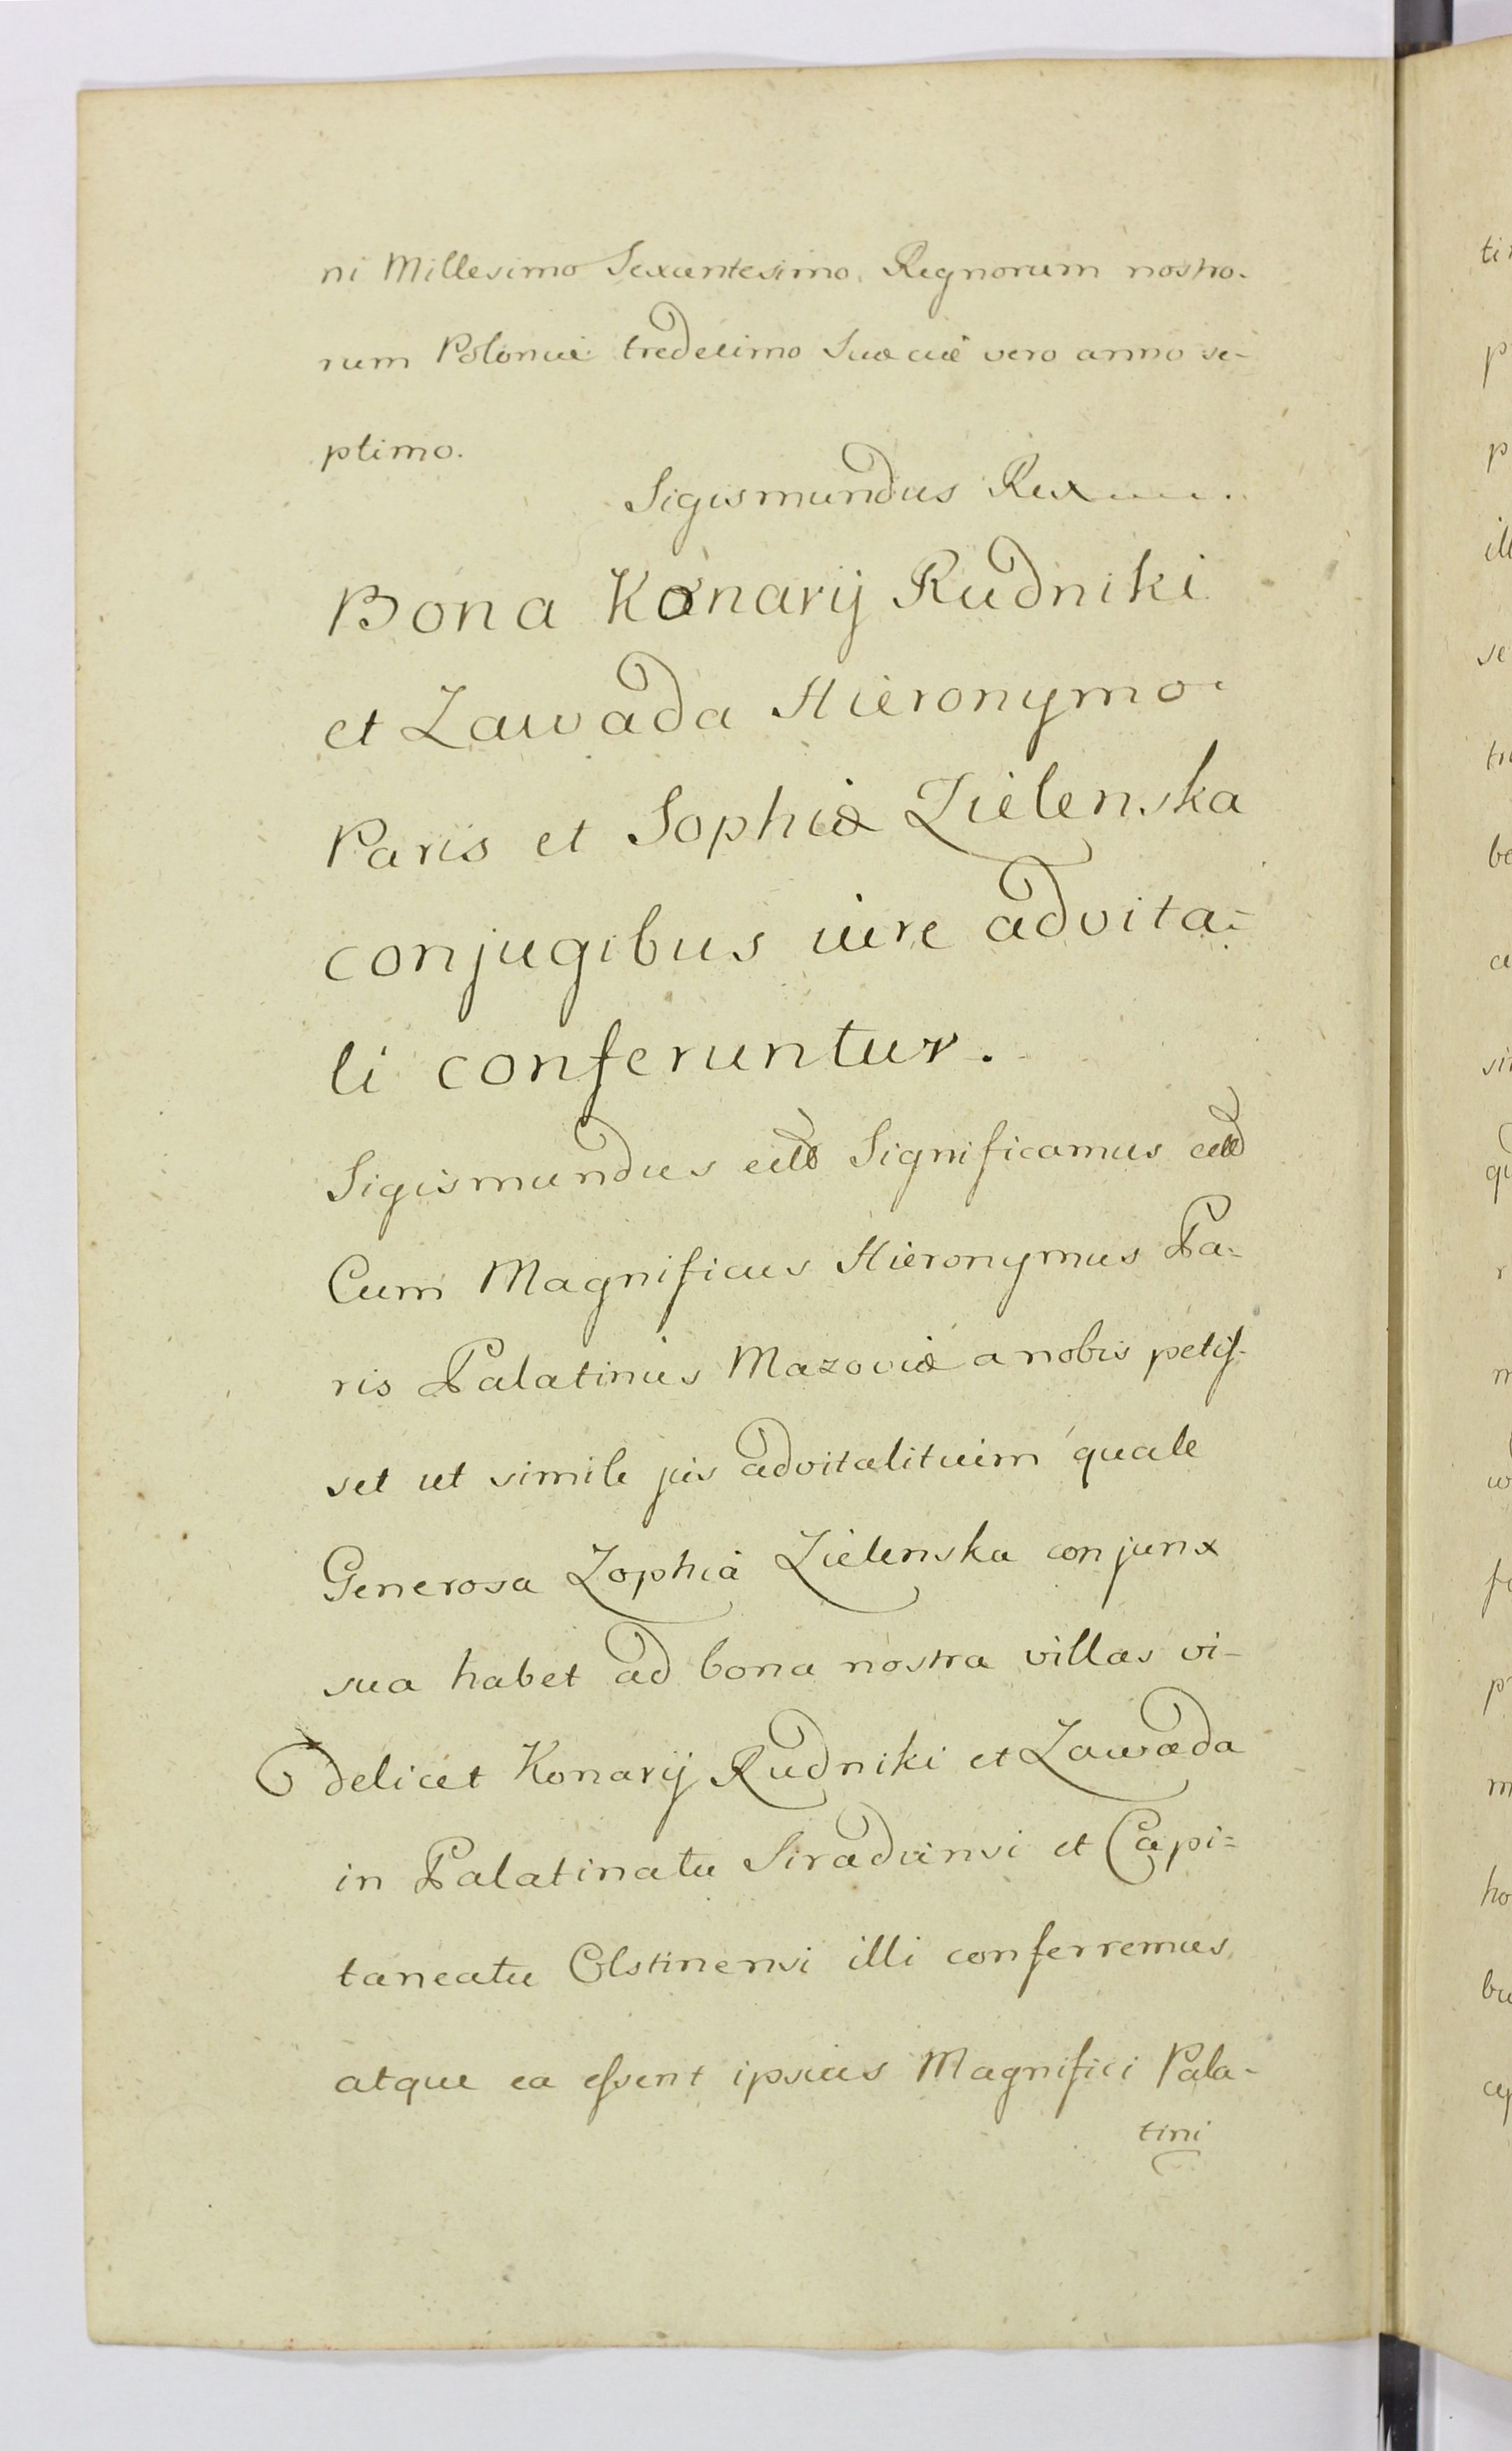 ni Millesimo Sexcentesimo, Regnorum nostro-
rum Poloniæ tredecimo Suæciæ vero anno se-
ptimo.
Sigismundus Rex
Bona Konarij Rudniki
et Zawada Hieronymo
Paris et Sophiæ Zielenska
conjugibus iure advita-
li conferuntur.
Sigismundus Significamus
Cum Magnificus Hieronymus Pa-
ris Palatinus Mazoviæ a nobis petis-
set ut simile jus advitalitium quale
Generosa Zophia Zielenska conjunx
sua habet ad bona nostra villas vi-
delicet Konarij Rudniki et Zawada
in Palatinatu Siradiensi et Capi-
taneatu Olstinensi illi conferremus
atque ea essent ipsius Magnifici Pala-
tini